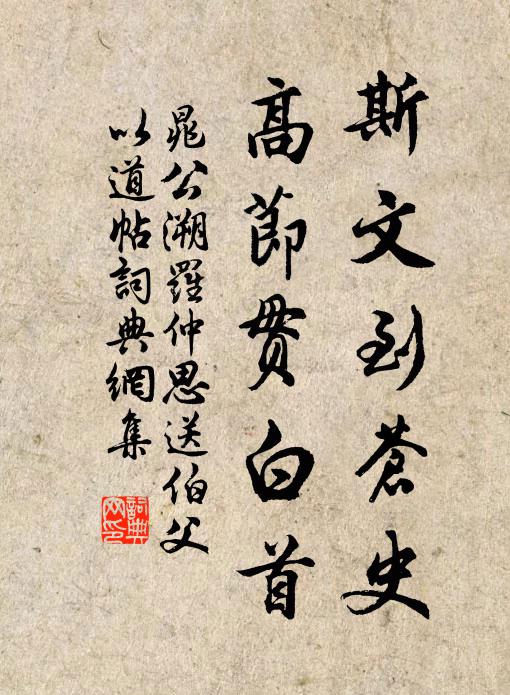 斯文到蒼史
高節貫白首
晁公溯羅仲思送伯父
以道帖詞典網集
詞典網印